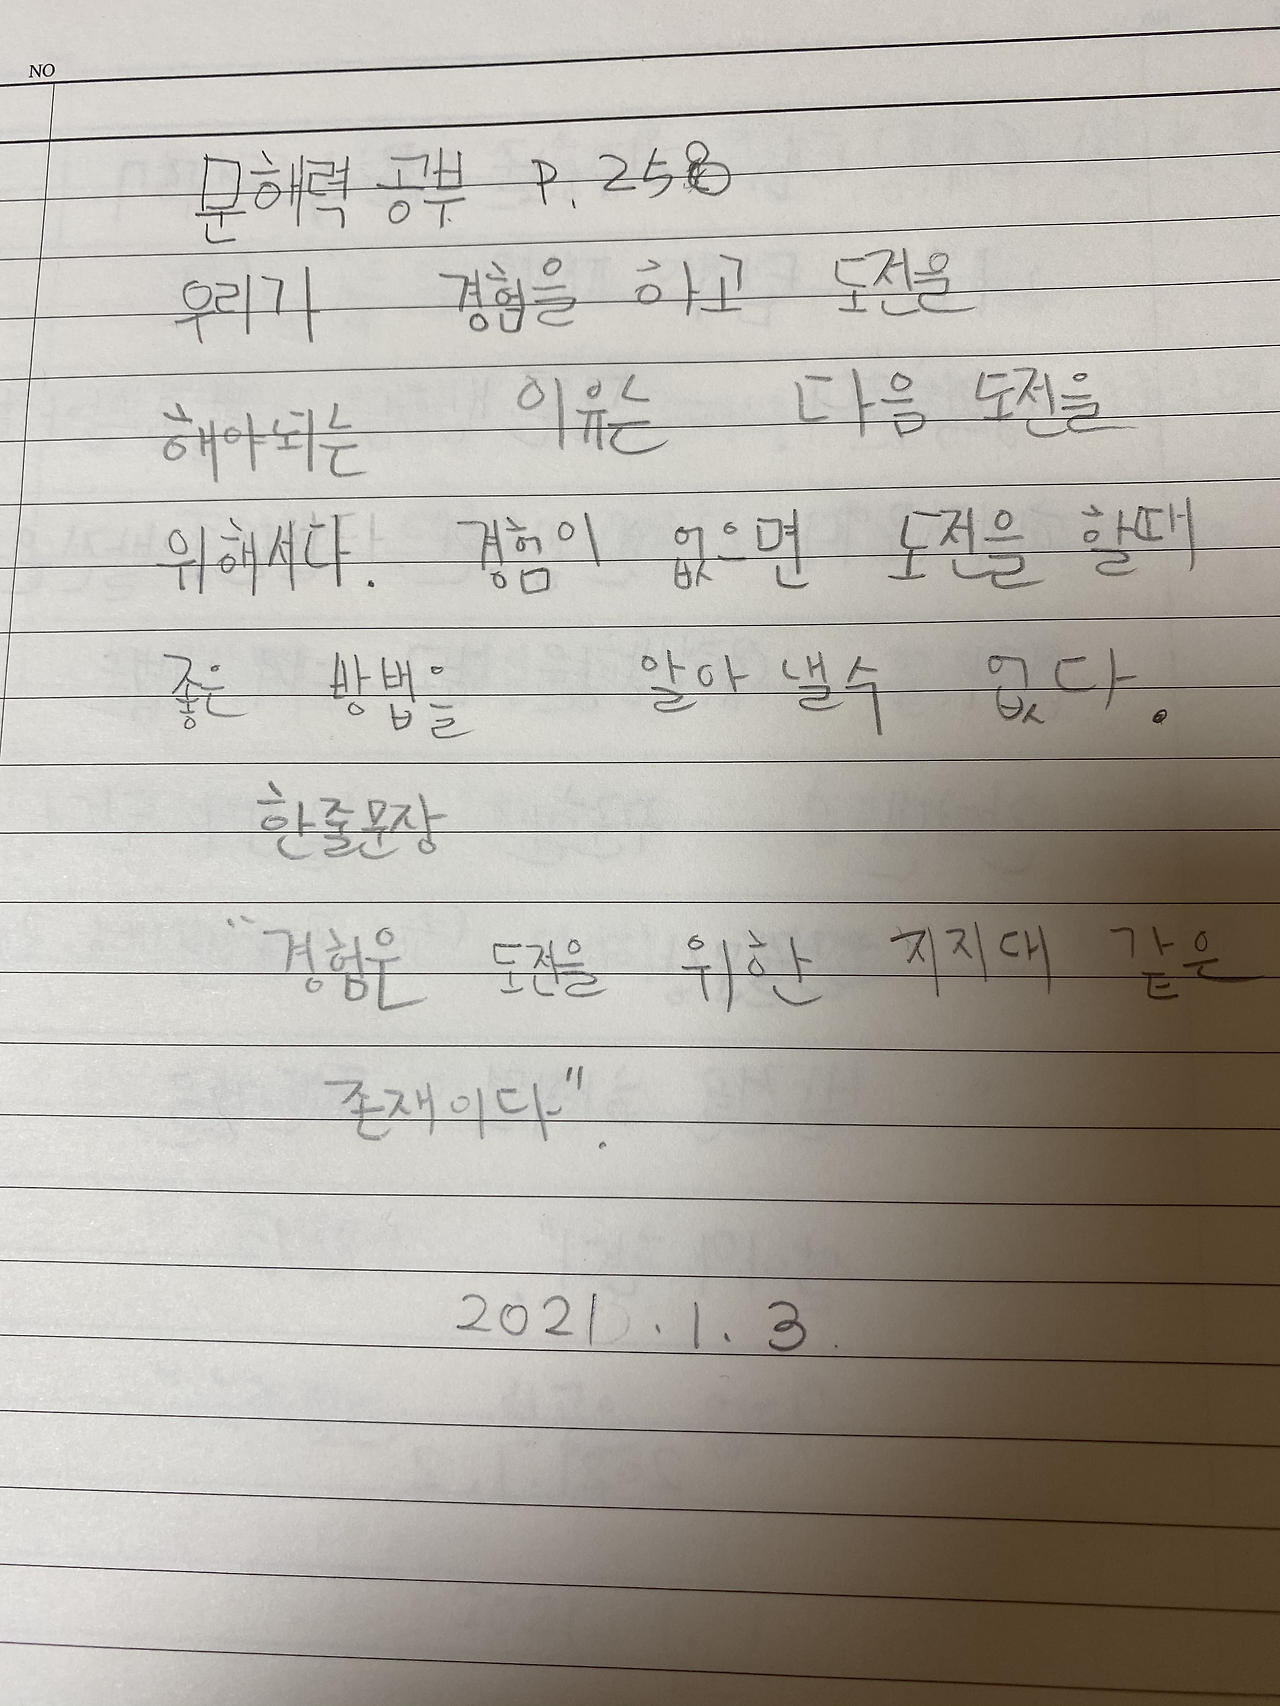 NO
문해력 공부 P. 258
우리가 경험을 하고 도전을
해야되는 이유는 다음 도전을
위해서다. 경험이 없으면 도전을 할때
좋은 방법을 알아 낼수 없다.
한줄문장
"경험은 도전을 위한 지지대 같은
존재이다".
2021.1.3.